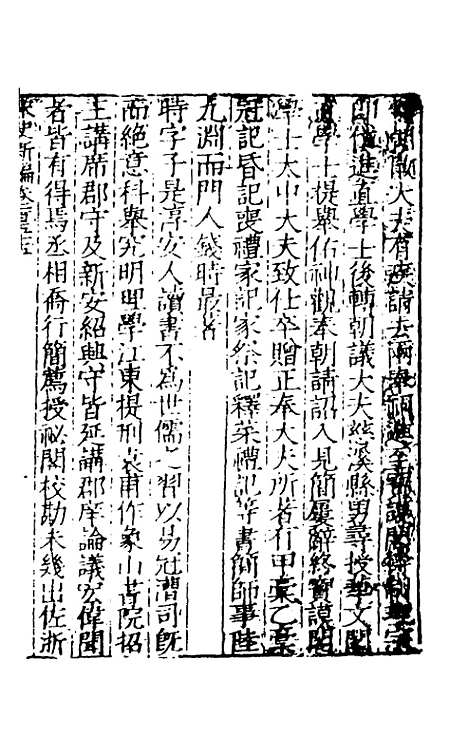 朝散大夫有疾請去兩畀祠進至寶謨閣待制理宗
即位進直學士後轉朝議大夫慈溪縣男尋授華文閣
直學士提舉佑神觀奉朝請詔入見簡屢辭終寶謨閣
學士太中大夫致仕卒贈正奉大夫所著有甲藁乙藁
冠記昏記喪禮家記家祭記釋菜禮記等書簡師事陸
九淵而門人錢時最著
時字子是淳安人讀書不為世儒之習以易冠漕司既
而絕意科舉究明理學江東提刑袁甫作象山書院招
主講席郡守及新安紹興守皆延講郡庠論議宏偉聞
者皆有得焉丞相喬行簡薦授祕閣校勘未幾出佐浙
宋史新編卷